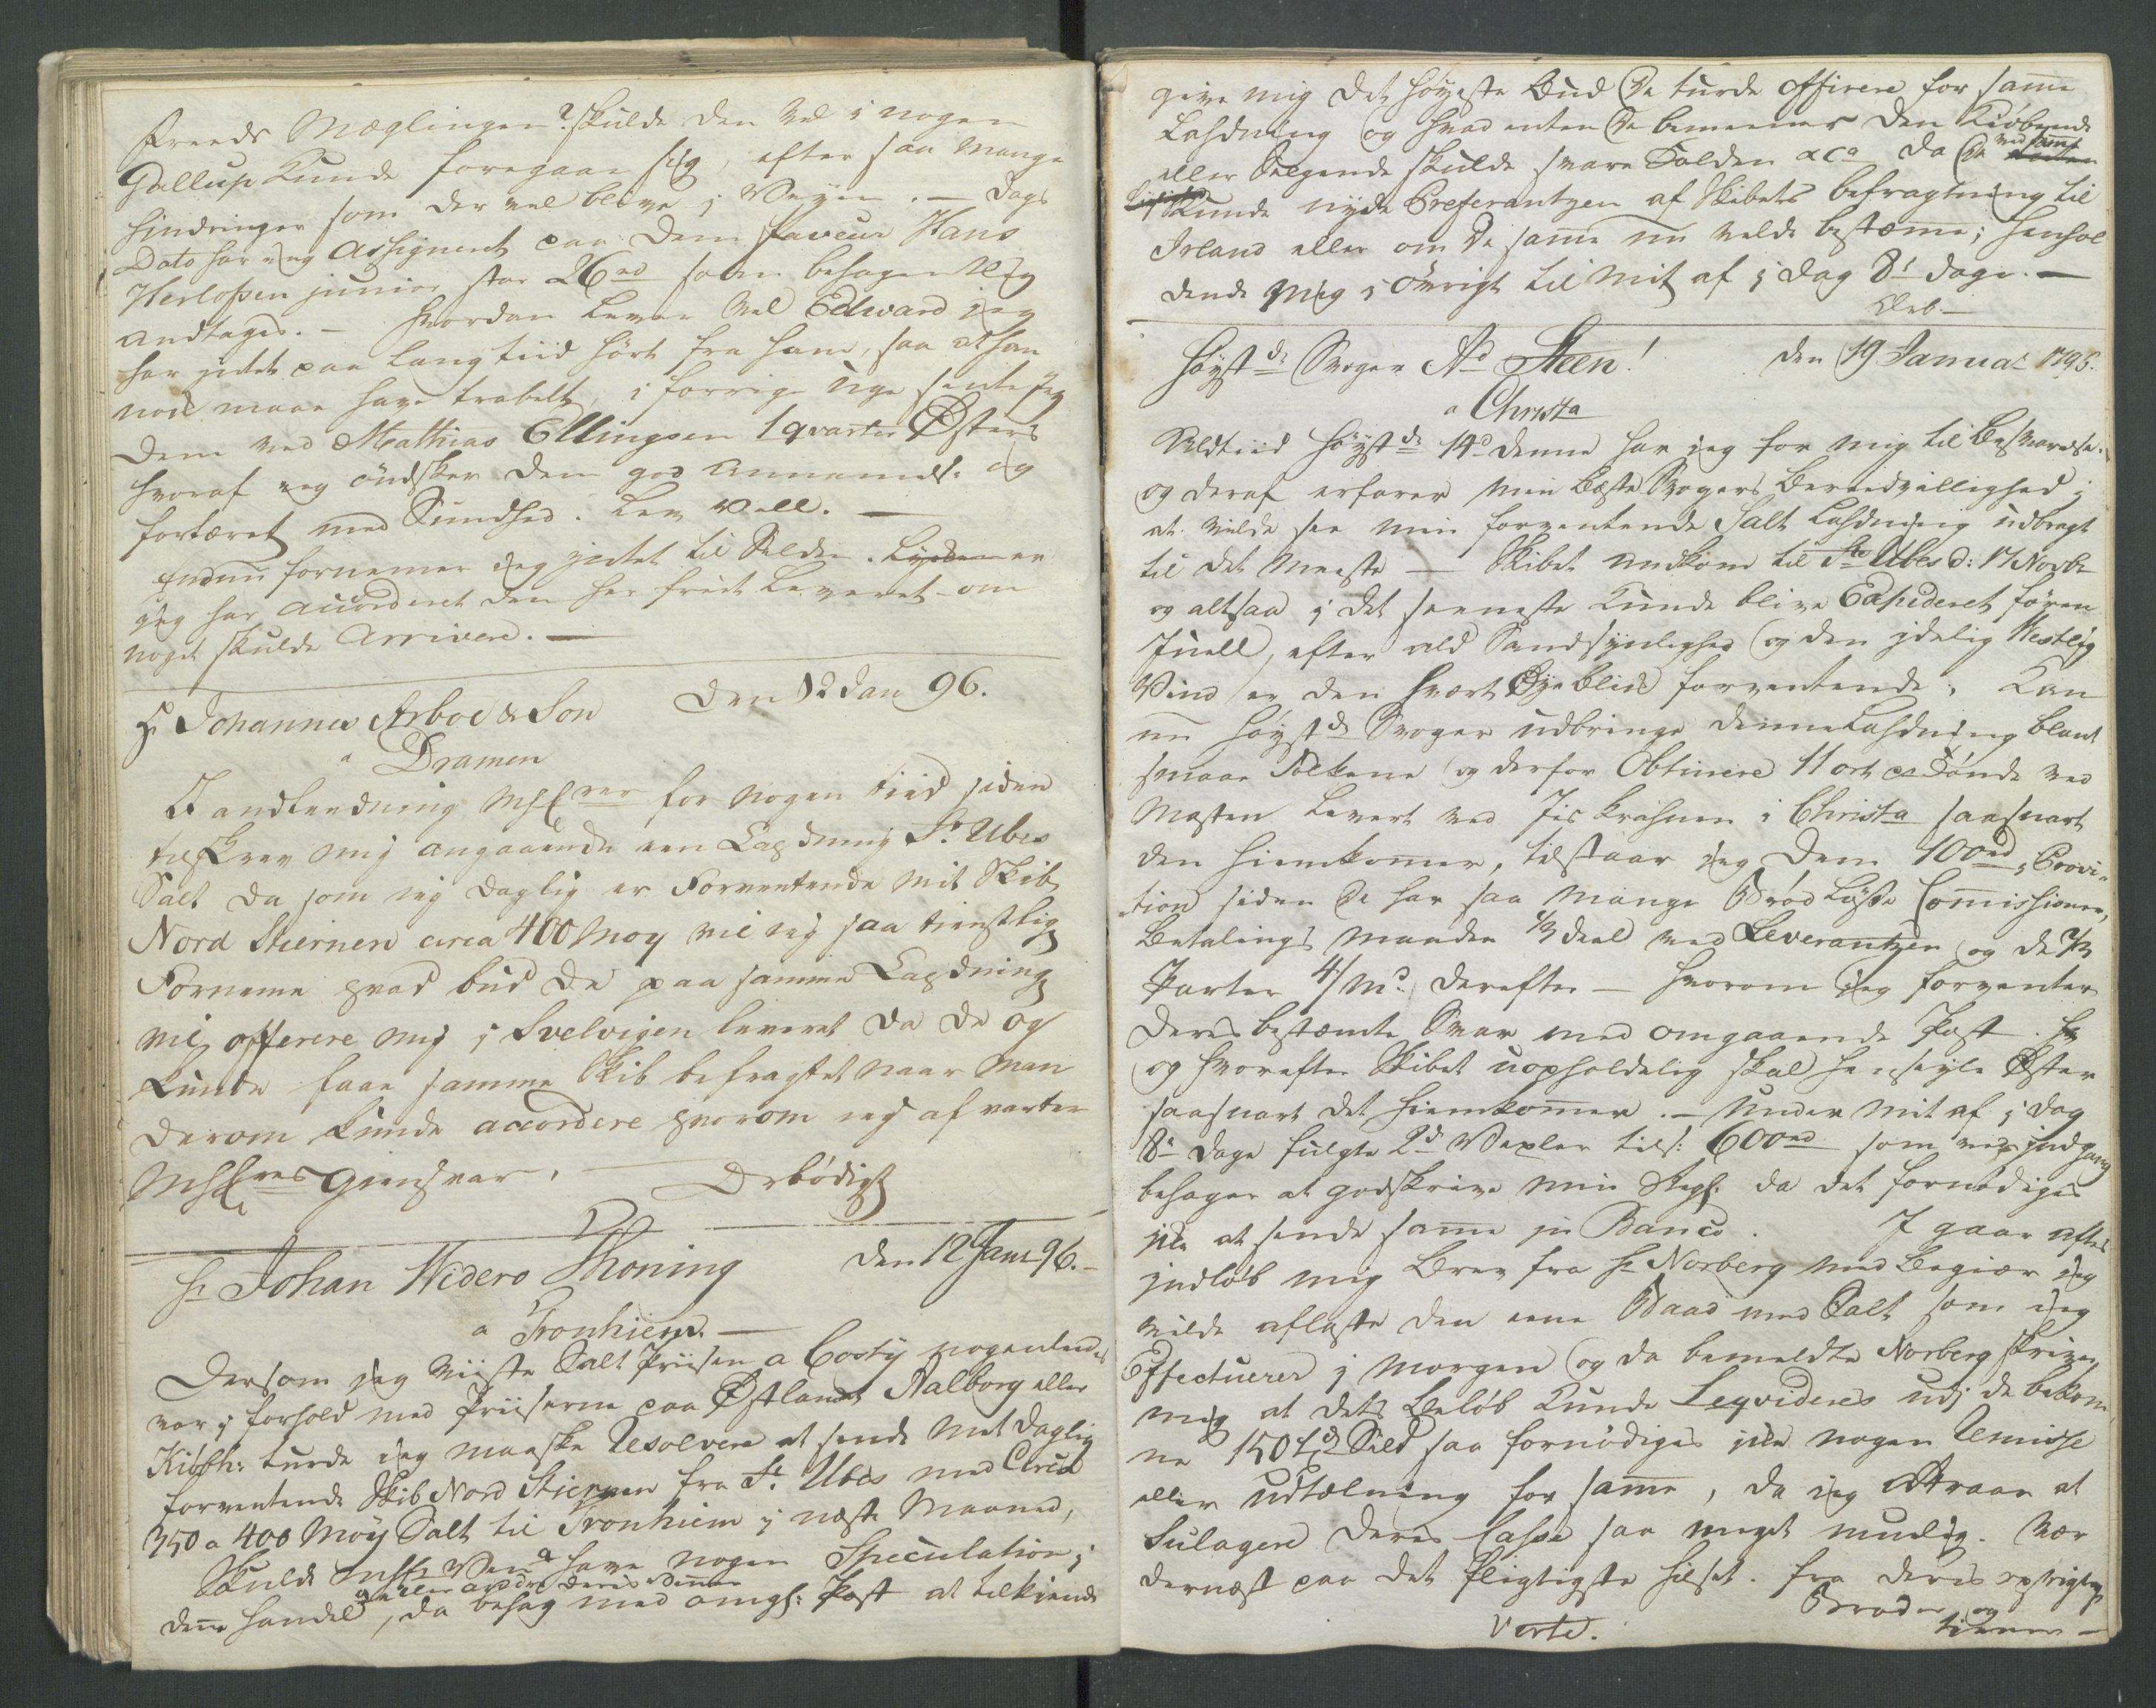 Freeds Mæglingen? skulde den vel i nogen
Gallup kunde foregaae sig, efter saa mange
hindringer som der vel blive i Veyen. — Dags
Dato har jeg Assigneret paa Dem faveur Hans
Herlofsen junior stor 26 rd som behageligst
andtages. — hvordan lever vel Edward jeg
har intet paa lang tiid hørt fra ham, saa at han
nok maae have trabelt, i forrige uge sendte jeg
Dem ved Mathias Ellingsen 1 qvarter Østers
hvoraf jeg øndsker Dem god Annammelse og
fortæret med Sundhed. Lev vell. —
Endnu fornemmer jeg intet til Silden.
jeg har accorderet den her frit Leveret om
noget skulde Arrivere. —
Hr Johannes Arboe & Son Den 12 Jan 96.
a Dramen
I andleedning MhHrrer for nogen tiid siden
tilskrev mig angaaende een Lasdning St. Ubes
Salt da som jeg daglig er Forventende mit Skib
Nord Stiernen circa 400 Moy vil jeg saa tienstligt
Fornemme hvad bud De paa samme Lasdning
vil offerere mig i Svelvigen leveret da De og
kunde faae samme Skib befragtet naar man
derom kunde accordere hvorom jeg afvarter
MhHrres giensvar. Ærbødigst
Hr Johan Widero Thoning den 12 Janr 96. —
a Tronhiem. —
Dersom jeg viiste Salt Priisen a Costy nogenledes
var i forhold med Priiserne paa Østlandet Aalborg eller
Kiøbh: turde jeg maaske Resolvere at sende mit daglig
forventende Skib Nord Stiernen fra St. Ubes med Circa
350 a 400 Möy Salt til Tronhiem i næste Maaned,
Skulde Ven have nogen Speculation i
eller andre deres Venner
denne handel, da behag med omgh: Post at tilkiende
give mig det høyeste Bud De turde offerere for samme
Lasdning og hvad enten De bemener den Kiøbende
eller Selgende skulde svare Tolden &ca da De ved samme
kunde nyde Preferantzen af Skibets befragtning til
Irland eller om De samme nu vilde bestæmme; henhol
dende mig i øvrigt til mit af i dag 8te dage. —
Høystærede Svoger Ad Steen! den 19 Januar 1796.
a Christa
Altiid høystærede 14d denne har jeg for mig til besvarelse.
og deraf erfarer min bæste Svogers Beredvillighed i
at vilde see min forventende Salt Lasdning udbragt
til det meeste — Skibet ankom til St Übes d: 17 Novbr
og altsaa i det seeneste kunde blive Expederet føren
Juell, efter ald Sandsynlighed og den idelig Westlig
Vind er den hvert Øyeblik forventende, kan
nu høystærede Svoger udbringe denne Lasdning blant
smaae Folkene og derfor Obtinere 11 ort pr Tønde ved
Masten levert ved Jis krahnen i Christa saasnart
den hiemkommer, tilstaar jeg Dem 100 rd i Provi-
tion siden De har saa mange Brødløse Commissioner,
Betalings maaden 1/3 deel ved Leverantzen og de 2/3
Parter 4/Md. derefter — hvorom jeg forventer
Deres bestæmte Svar med omgaaende Post.
og hvorefter Skibet uopholdelig skal henseyle Øster
saasnart det hiemkommer. — Under mit af i dag
8te dage fulgte 2de Vexler tils: 600 rd som ved indgang
behages at godskrive min Regn. da det fornødiges
ikke at sende samme in Banco. I gaar aftes
indløb mig Brev fra Hr Norberg med Begiær jeg
vilde aflaste den eene Baad med Salt som jeg
Effectuerer i morgen og da bemeldte Norberg skriver
mig at dets beløb kunde Leqvideres udj de bekom
ne 150 Tdr Sild saa fornødiges ikke nogen Remisse
eller udtælning for samme, da jeg attraar at
Sulagere Deres Casse saa meget muelig. Vær
dernæst paa det pligtigste hilset. fra Deres oprigtige
Broder og
tiener —
Verte.